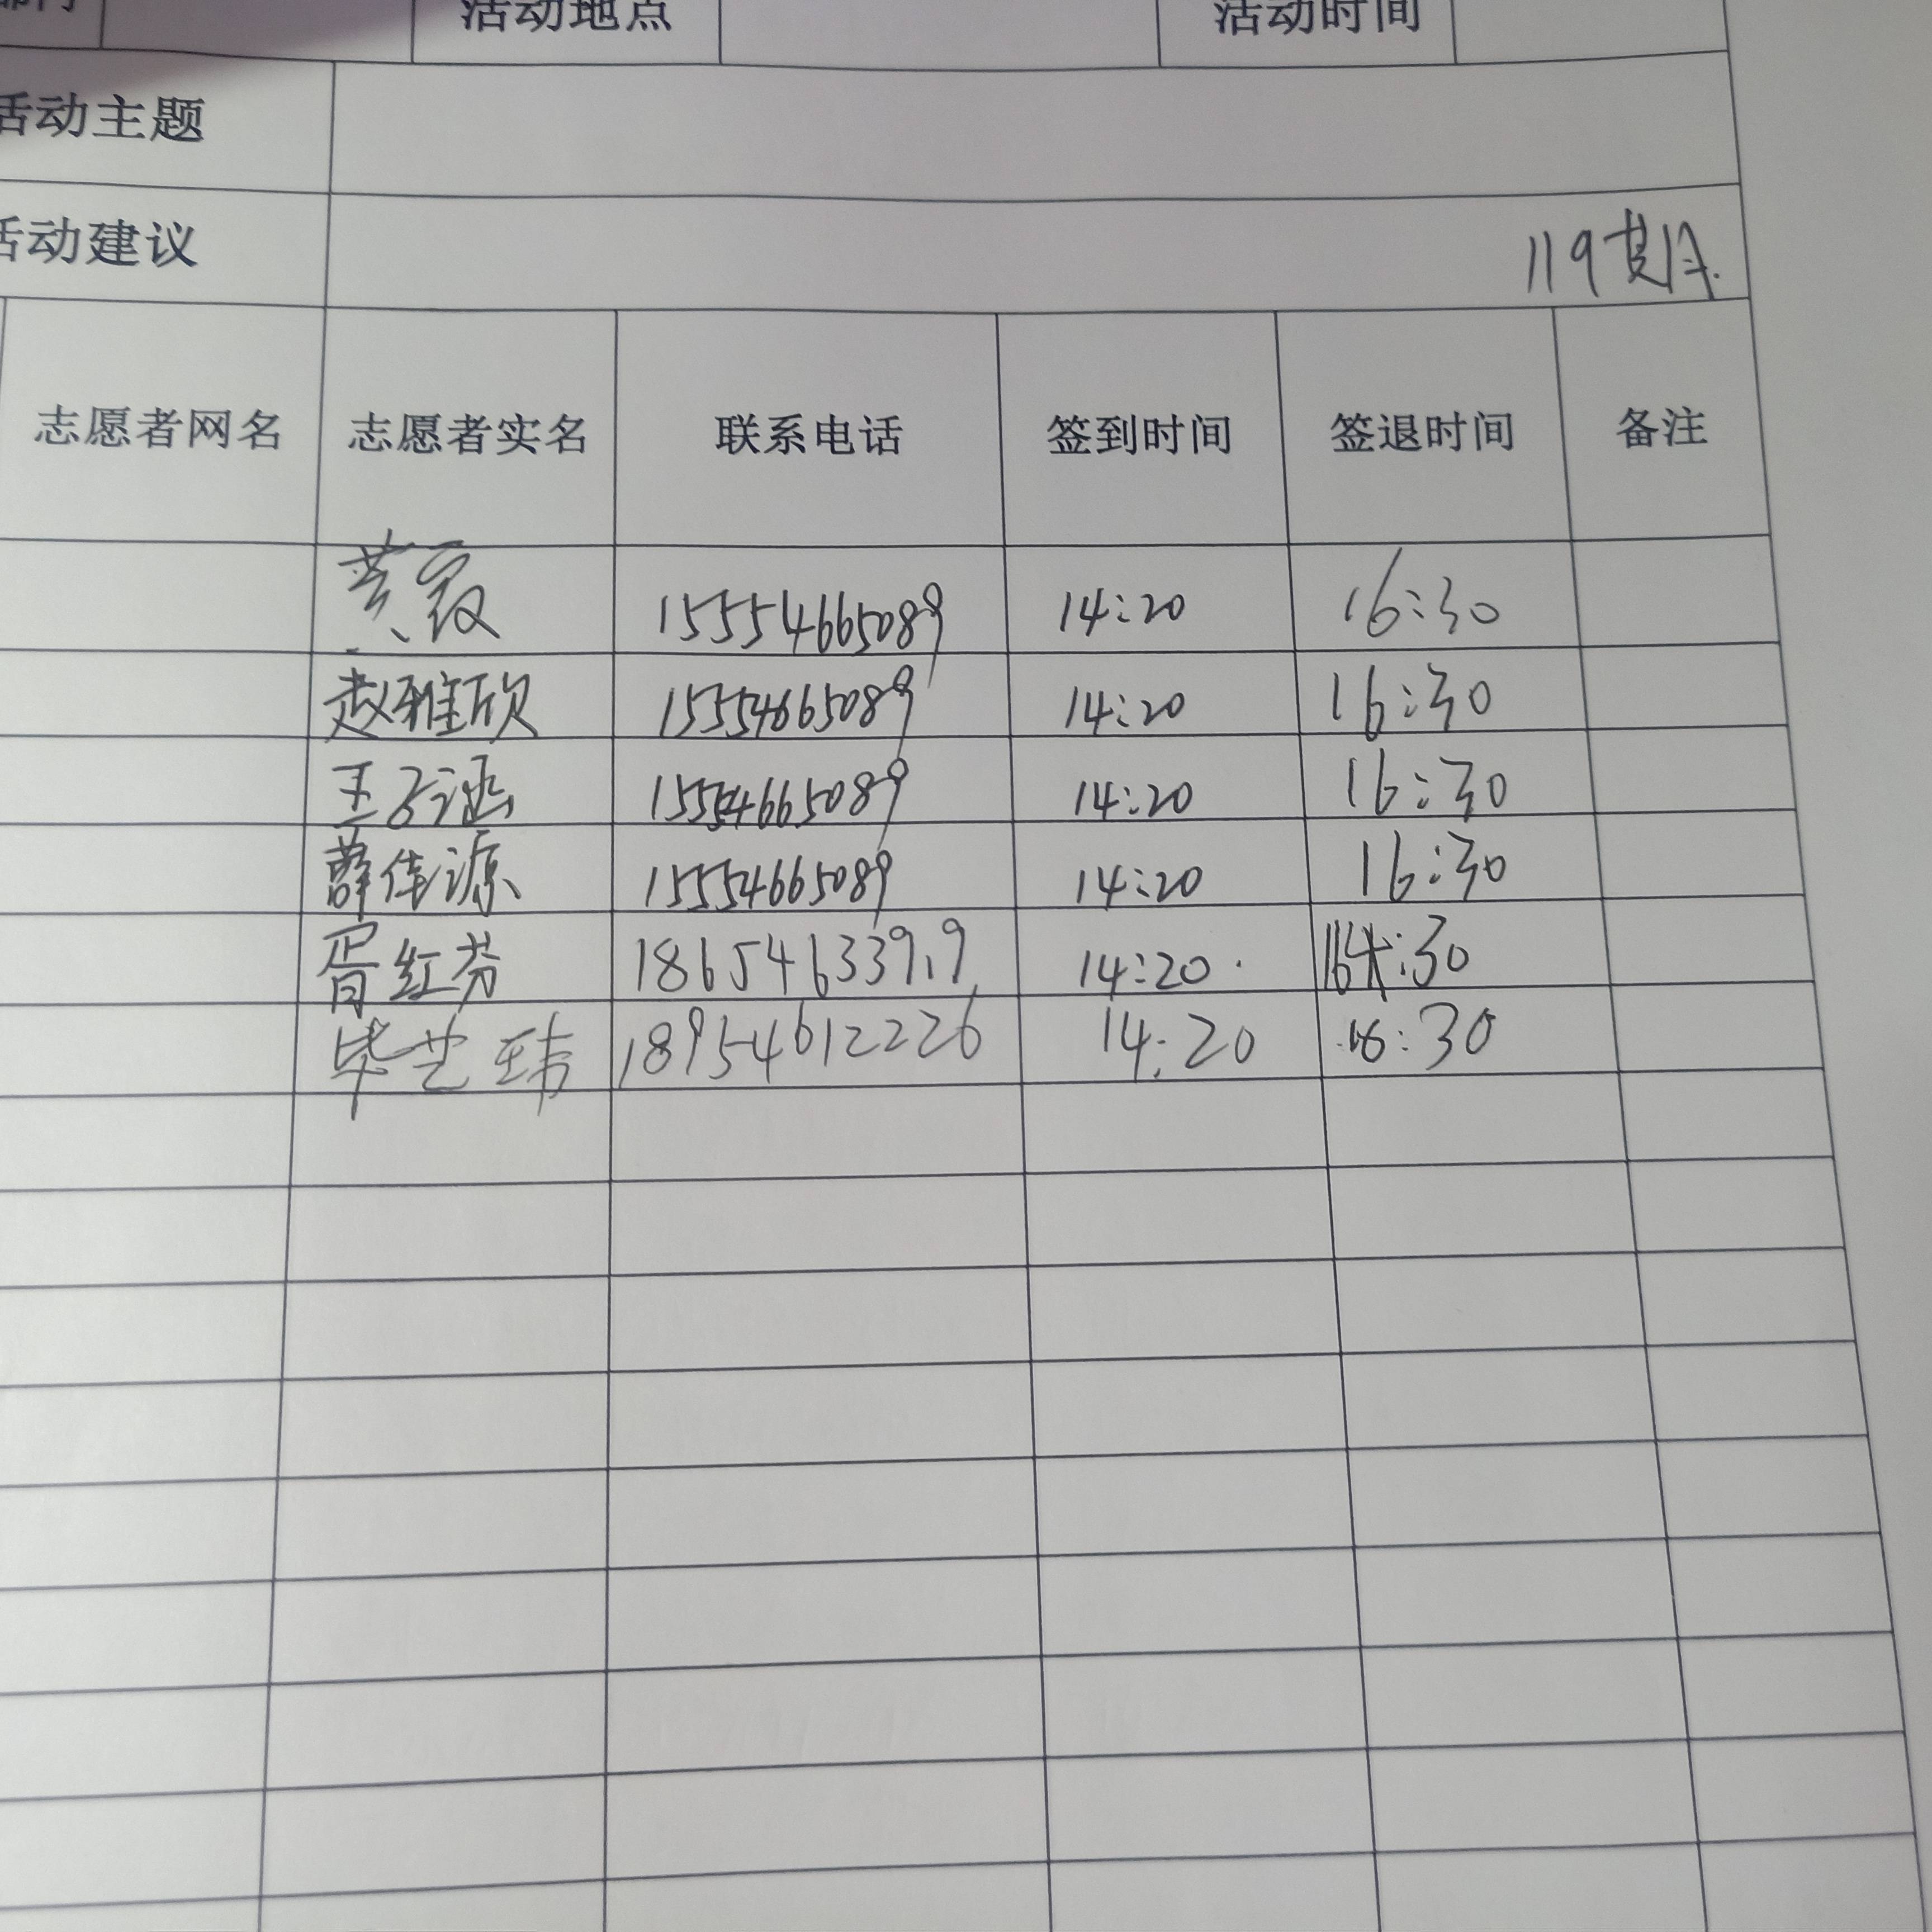 部门 活动地点 活动时间
活动主题
活动建议 119期.
志愿者网名 志愿者实名 联系电话 签到时间 签退时间 备注
黄霞 15554665089 14:20 16:30
赵雅欣 15554665089 14:20 16:30
王子涵 15554665089 14:20 16:30
薛佳源 15554665089 14:20 16:30
胥红芬 18654633919 14:20 16:30
毕芝玮 18954612226 14:20 16:30